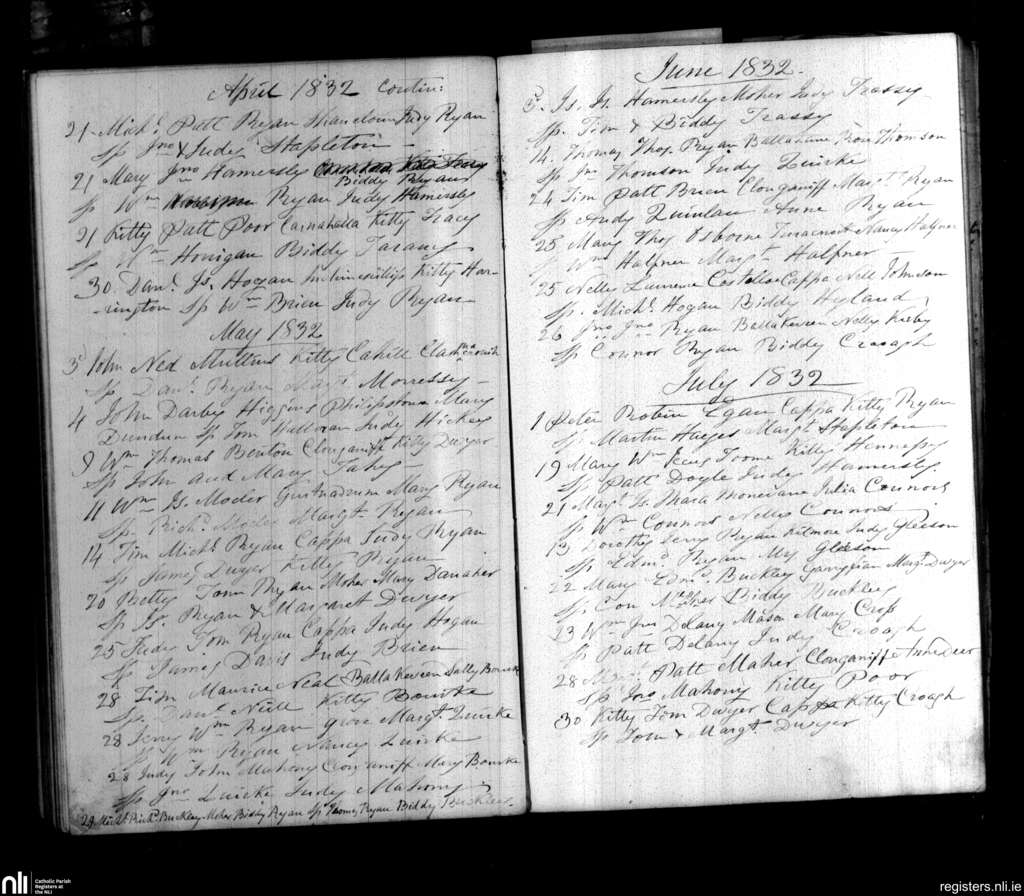 April 1832 Contin:
21 Mich.l Patt Ryan Shancloun Judy Ryan
Sp Jno & Judy Stapleton
21 Mary Jno Hamersly
Biddy Ryan
Sp Wm Ryan Judy Hamersly
21 Kitty Patt Poor Carnahalla Kitty Tracy
Sp Wm Honigan Biddy
30. Danl. Js. Hogan Kitty Har-
-rington Sp Wm Brien Judy Ryan
May 1832
3 John Ned Mullins Kitty Cahill
Sp Danl. Ryan Margt. Morressy
4 John Darby Higgins Philipstown Mary
Dundun Sp Tom Judy Hickey
9 Wm Thomas Benton Clonganiff Kitty Dwyer
Sp John and Mary Fahy
11 Wm Js. Moder Mary Ryan
Sp. Richd. Margt. Ryan
14 Tim Michl Ryan Cappa Judy Ryan
Sp James Dwyer Kitty Ryan
20 Betty Tom Ryan Moher Mary Danaher
Sp Js. Ryan & Margaret Dwyer
25 Judy Tom Ryan Cappa Judy Hogan
Sp James Davis Judy Brien
28 Tim Maurice Neal Ballakeveen Sally Bourke
Sp. Danl. Neill Kitty Bourke
28 Jerry Wm Ryan Margt. Quirke
Sp Wm Ryan Nancy Quirke
28 Judy John Mahony Clonganiff Mary Bourke
Sp Jno Quirke Judy Mahony
29 Richd. Buckley Moher Biddy Ryan Sp Thomas Ryan Biddy Buckley
June 1832.
Js. Js. Hamersly Moher Judy Trassy
Sp. Tim & Biddy Trassy
14. Thomas Thos. Ryan Thomson
Sp Jno Thomson Judy Quirke
24 Tim Patt Brien Clonganiff Margt. Ryan
Sp Andy Quinlan Anne Ryan
25 Mary Thos Osborne Nancy Halfner
Sp Wm Halfner Margt. Halfner
25 Nelly Laurence Costello Cappa Nell Johnson
Sp. Michl. Hogan Biddy Hyland
26 Jno Jno Ryan Ballakeveen Nelly Kirby
Sp Connor Ryan Biddy Croagh
July 1832
1 Peter Robin Egan Cappa Kitty Ryan
Sp Martin Hayes Margt. Stapleton
19 Mary Wm Toome Kitty Hennessy
Sp Patt Doyle Judy Hamersly
21 Margt. Js. Mara Julia Connors
Sp Wm Connors Nelly Connors
13 Dorothy Jerry Ryan Kilmore Judy Gleeson
Sp Edmd. Ryan Mrs Gleeson
22 Mary Edmd. Buckley Margt. Dwyer
Sp. Con Biddy Buckley
23 Wm Jno Delany Mason Mary Cross
Sp Patt Delany Judy Croagh
28 Patt Maher Clonganiffe Anne Deer
Sp Jno Mahony Kitty Poor
30 Kitty Tom Dwyer Cappa Kitty Croagh
Sp Tom & Margt. Dwyer
nli
Catholic Parish
Registers at
the NLI
registers.nli.ie